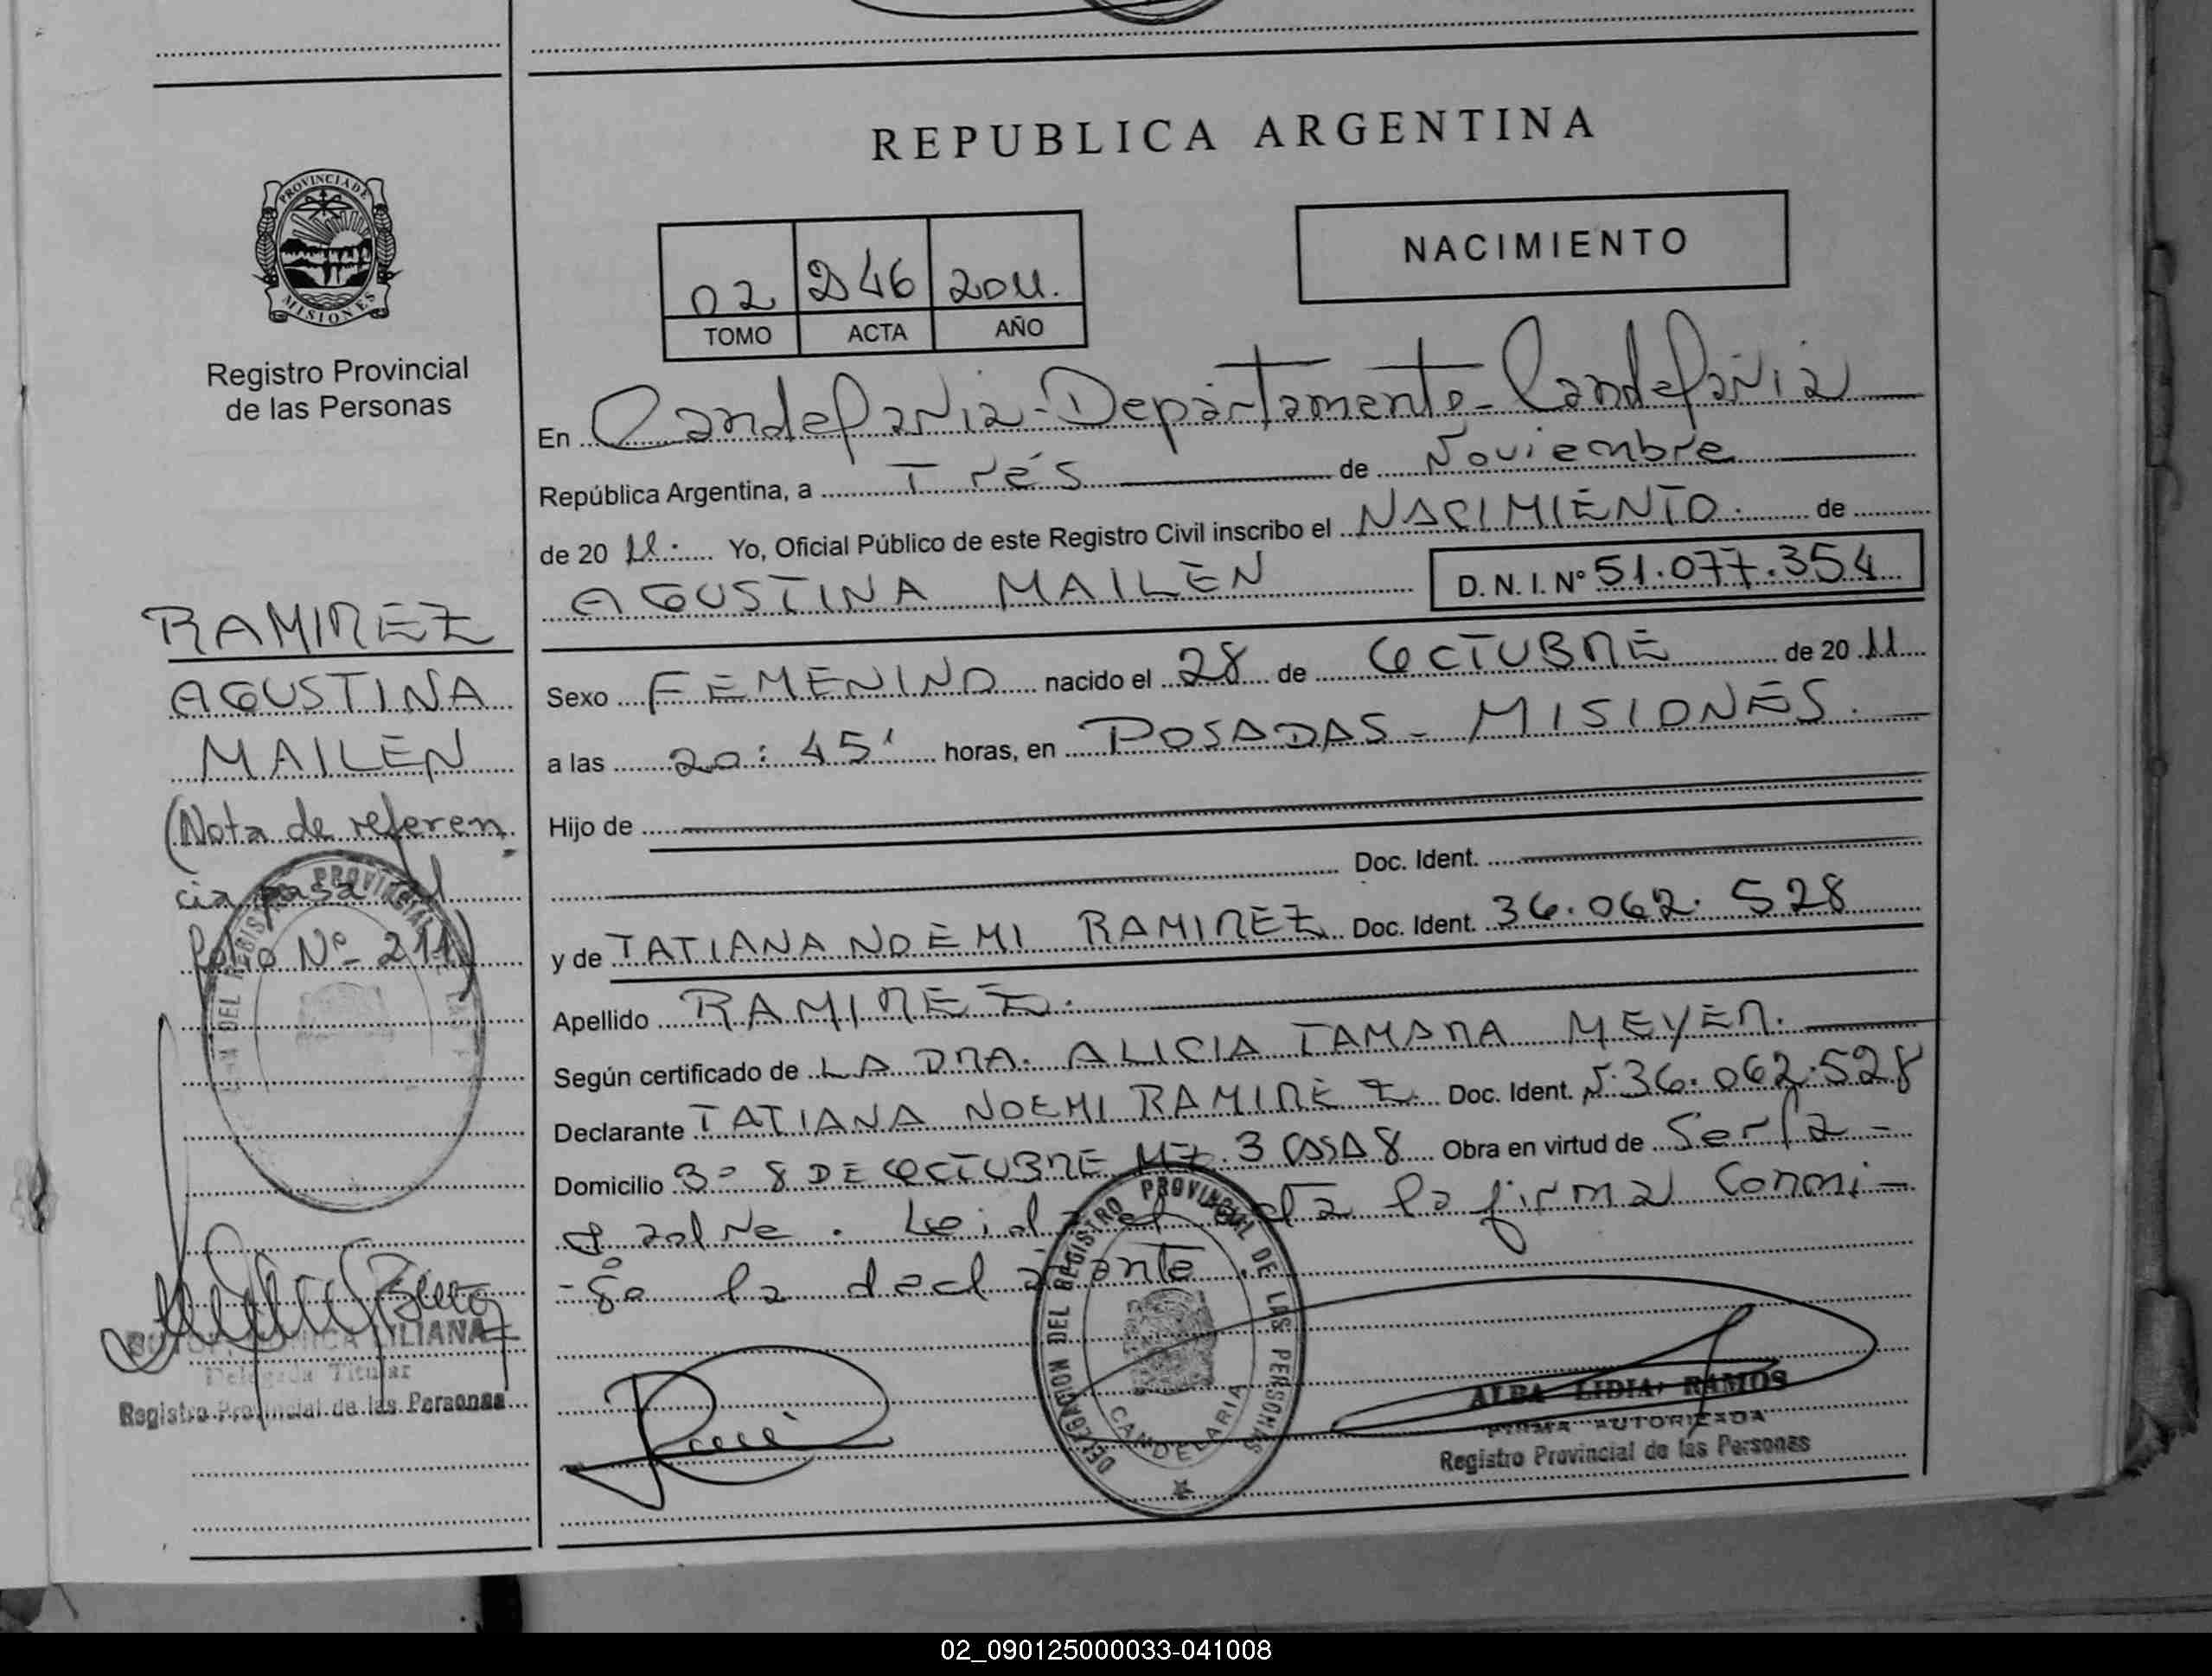 REPUBLICA ARGENTINA
PROVINCIA DE
MISIONES
Registro Provincial
de las Personas
02 246 2011.
TOMO ACTA AÑO
NACIMIENTO
En Candelaria - Departamento - Candelaria
República Argentina, a Trés de Noviembre
de 20 11. Yo, Oficial Público de este Registro Civil inscribo el NACIMIENTO. de
AGUSTINA MAILEN D. N. I. Nº 51.077.354
Sexo FEMENINO nacido el 28 de OCTUBRE de 20 11
a las 20:45' horas, en POSADAS - MISIONES.
Hijo de
Doc. Ident.
y de TATIANA NOEMI RAMIREZ Doc. Ident. 36.062.528
Apellido RAMIREZ.
Según certificado de LA DRA. ALICIA TAMARA MEYER.
Declarante TATIANA NOEMI RAMIREZ Doc. Ident. 36.062.528
Domicilio Bº 8 DE OCTUBRE MZ. 3 CASA 8 Obra en virtud de Ser la -
el acta la firma Conmi-
-go la declarante.
RAMIREZ
AGUSTINA
MAILEN
(Nota de referen
cia pasa al
folio Nº 211)
LILIANA
Delegada Titular
Registro Provincial de las Personas
DELEGACION DEL REGISTRO PROVINCIAL DE LAS PERSONAS
CANDELARIA
ALBA LIDIA RAMOS
FIRMA AUTORIZADA
Registro Provincial de las Personas
02_090125000033-041008